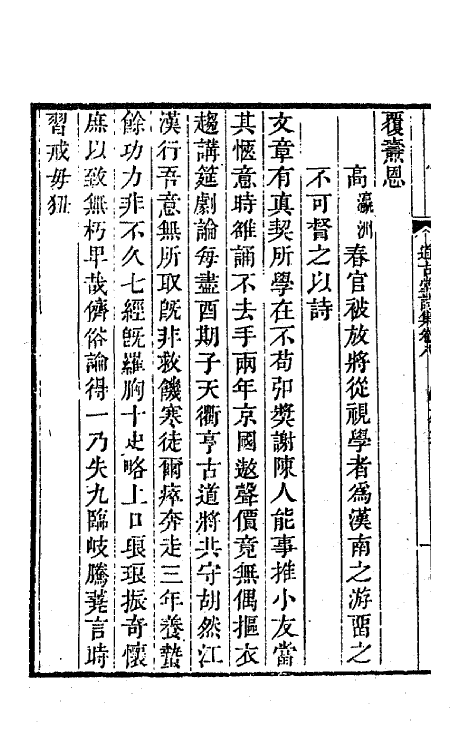 覆燾恩
高瀛洲春官被放將從視學者爲漢南之游畱之
不可督之以詩
文章有真契所學在不苟卯獎謝陳人能事推小友當
其愜意時雒誦不去手兩年京國遨聲價竟無偶摳衣
趨講筵劇論每盡酉期子天衢亨古道將共守胡然江
漢行吾意無所取旣非救饑寒徒爾瘁奔走三年養蟄
餘功力非不久七經旣羅胸十史略上口琅琅振奇懷
庶以致無朽早哉儕俗論得一乃失九臨岐騰蕘言時
習戒毋狃
道古堂詩集卷